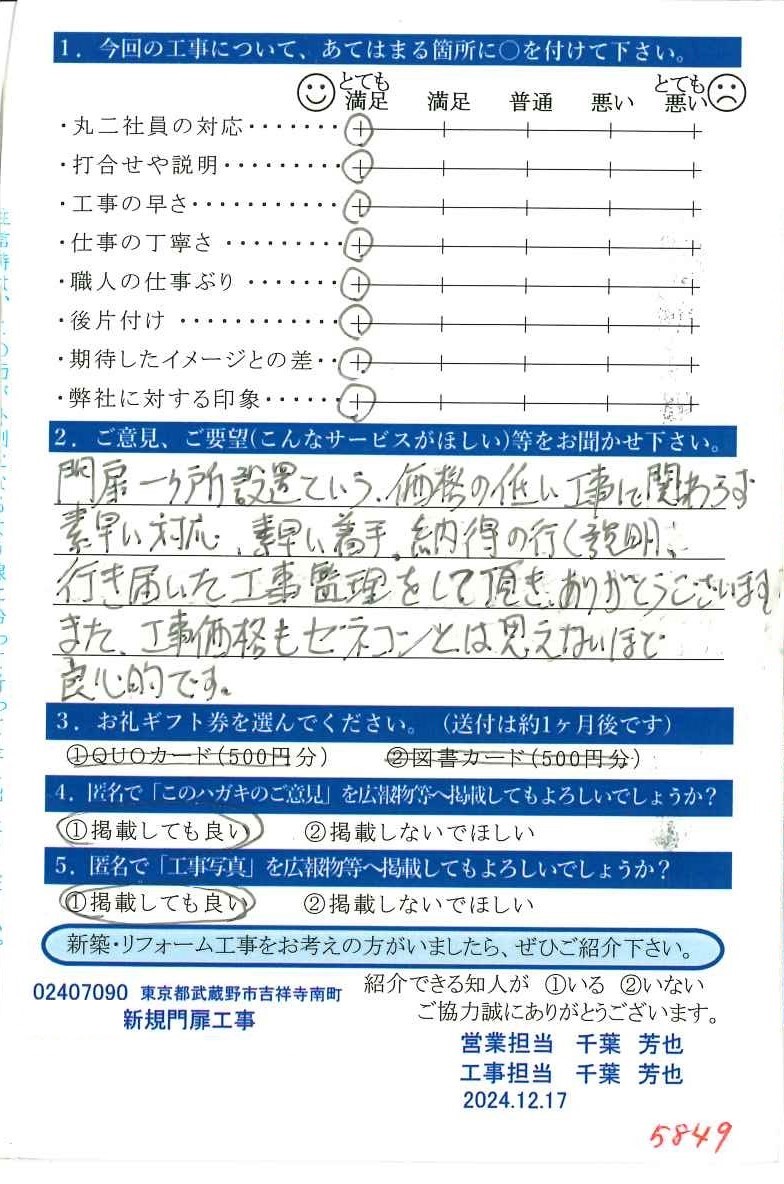 1. 今回の工事について、あてはまる箇所に○を付けて下さい。
とても満足 満足 普通 悪い とても悪い
・丸二社員の対応・・・・・・・
・打合せや説明・・・・・・・・・
・工事の早さ・・・・・・・・・・・
・仕事の丁寧さ・・・・・・・・・
・職人の仕事ぶり・・・・・・・
・後片付け・・・・・・・・・・・・
・期待したイメージとの差・・
・弊社に対する印象・・・・・・
2. ご意見、ご要望(こんなサービスがほしい)等をお聞かせ下さい。
門扉一ヶ所設置ていう、価格の低い工事に関わらず
素早い対応、素早い着手、納得の行く説明、
行き届いた工事監理をして頂き、ありがとうございます
また、工事価格もゼネコンとは思えないほど
良心的です。
3. お礼ギフト券を選んでください。(送付は約1ヶ月後です)
①QUOカード(500円分) ②図書カード(500円分)
4. 匿名で「このハガキのご意見」を広報物等へ掲載してもよろしいでしょうか?
①掲載しても良い ②掲載しないでほしい
5. 匿名で「工事写真」を広報物等へ掲載してもよろしいでしょうか?
①掲載しても良い ②掲載しないでほしい
新築・リフォーム工事をお考えの方がいましたら、ぜひご紹介下さい。
紹介できる知人が ①いる ②いない
02407090 東京都武蔵野市吉祥寺南町
ご協力誠にありがとうございます。
新規門扉工事
営業担当 千葉 芳也
工事担当 千葉 芳也
2024.12.17
5849